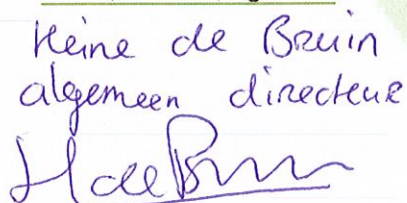 Heine de Bruin
algemeen directeur
HdeBruin